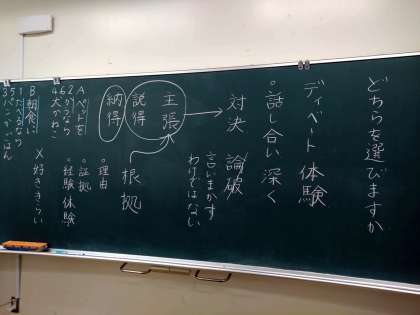 どちらを選びますか
ディベート体験
。話し合い 深く
対決 論破
言いまかす
わけではない
主張
説得
納得
根拠
。理由
。証拠
。経験 体験
×好ききらい
Aペットを
かうなら
犬かねこ
B朝食に
たべるなら
パンかごはん